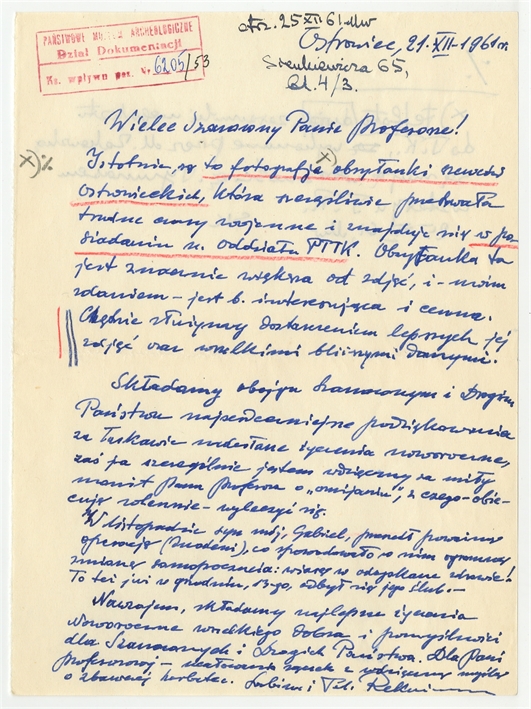 PAŃSTWOWE MUZEUM ARCHEOLOGICZNE
Dział Dokumentacji
Ks. wpływu poz. Nr 6205/53
otrz. 25 XII 61
Ostrowiec, 21.XII-1961 r.
Sienkiewicza 65,
bl. 4/3.
Wielce Szanowny Panie Profesorze!
x)
x) Istotnie są to fotografje obsyłanki szewców
ostrowieckich, która szczęśliwie przetrwała
trudne czasy wojenne i znajduje się w po-
siadaniu n. oddziału PTTK. Obsyłanka ta
jest znacznie większa od zdjęć, i – moim
zdaniem – jest b. interesująca i cenna.
Chętnie służymy dostarczeniem lepszych jej
zdjęć oraz wszelkimi bliższymi danymi.
Składamy obojgu Szanownym i Drogim
Państwu najserdeczniejsze podziękowania
za łaskawie nadesłane życzenia noworoczne,
zaś ja szczególnie jestem wdzięczny za miły
monit Pana Profesora o „omijaniu”, z czego – obie-
cuję solennie – wyleczyć się.
W listopadzie syn mój, Gabriel, przeszedł poważną
operację, co spowodowało w nim ogromną
zmianę samopoczucia: wiarę w odzyskane zdrowie!
To też już w grudniu, 13-go, odbył się jego ślub. –
Nawzajem, składamy najlepsze życzenia
Noworoczne wszelkiego dobra i pomyślności
dla Szanownych i Drogich Państwa. Dla Pani
Profesorowej – ucałowania rączek z wdzięczną myślą
o zbawczej herbatce.